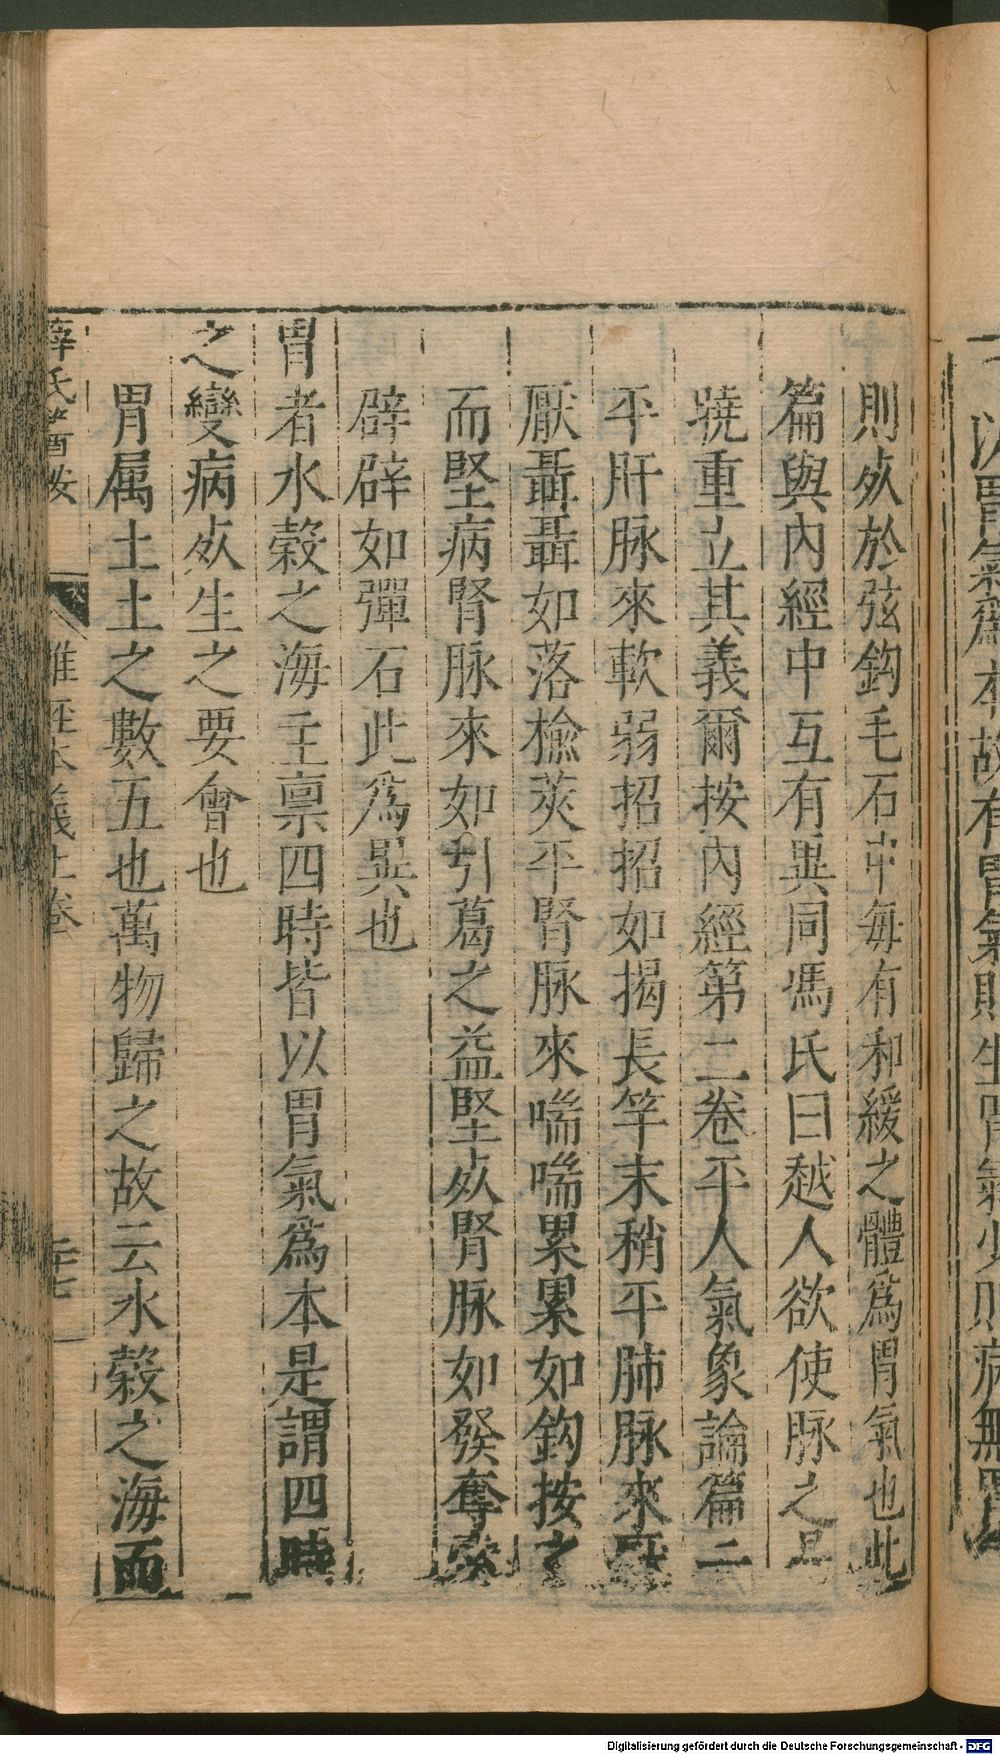 以胃氣爲本故有胃氣則生胃氣少則病無胃
則𣦸於弦鈎毛石中每有和緩之體爲胃氣也此
篇與内經中互有異同馮氏曰越人欲使脉之易
曉重立其義爾按内經第二卷平人氣象論篇云
平肝脉來軟弱招招如揭長竿末稍平肺脉來厭
厭聶聶如落榆莢平腎脉來喘喘累累如鈎按之
而堅病腎脉來如引葛之益堅𣦸腎脉如發奪索
辟辟如彈石此爲異也
胃者水穀之海主禀四時皆以胃氣爲本是謂四時
之變病𣦸生之要會也
胃属土土之數五也萬物歸之故云水穀之海而
薛氏醫按 難經本義上卷 三十七
Digitalisierung gefördert durch die Deutsche Forschungsgemeinschaft - DFG